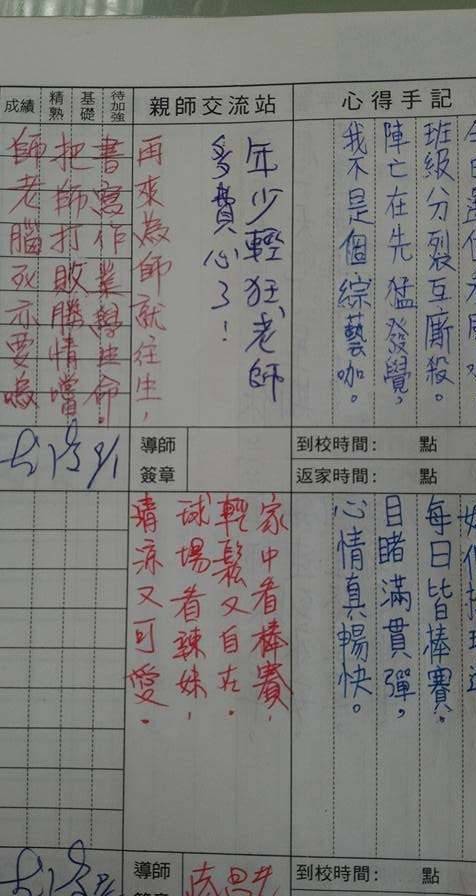 心得手記
班級分裂互廝殺。
陣亡在先猛發覺,
我不是個綜藝咖。
親師交流站
年少輕狂,老師
多費心了!
再來為師就往生,
待加強
基礎
精熟
成績
書寫作業學生命.
把師打敗勝情嚐
師老腦死亦要
到校時間: 點
返家時間: 點
導師
簽章
9/1
每日皆棒賽.
目睹滿貫彈,
心情真暢快。
家中看棒賽,
輕鬆又自在.
球場看辣妹,
清涼又可愛.
到校時間: 點
導師